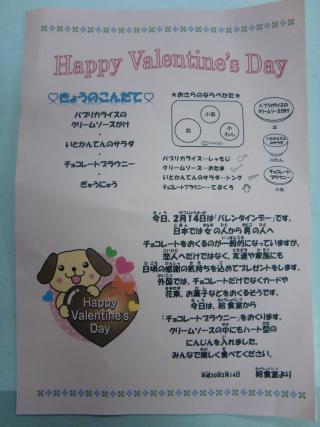 Happy Valentine's Day
♡きょうのこんだて♡
パプリカライスの
クリームソースがけ
・
いとかんてんのサラダ
・
チョコレートブラウニー
・
ぎゅうにゅう
★おさらのならべかた★
小皿
皿
小わん
パプリカライスの
クリームソースがけ
皿
いとかんてん
サラダ
小わん
チョコレート
ブラウニー
小皿
パプリカライス…しゃもじ
クリームソース…おたま
いとかんてんサラダ…トング
チョコレートブラウニー…てぶくろ
今日、2月14日は「バレンタインデー」です。
日本では女の人から男の人へ
チョコレートをおくるのが一般的になっていますが、
恋人だけではなく、友達や家族にも
日頃の感謝の気持ちを込めてプレゼントをします。
外国では、チョコレートだけでなくカードや
花束、お菓子などをおくるそうです。
今日は、給食室から
「チョコレートブラウニー」をおくります。
クリームソースの中にもハート型の
にんじんを入れました。
みんなで楽しく食べてください。
平成30年2月14日 給食室より
Happy
Valentine's
Day